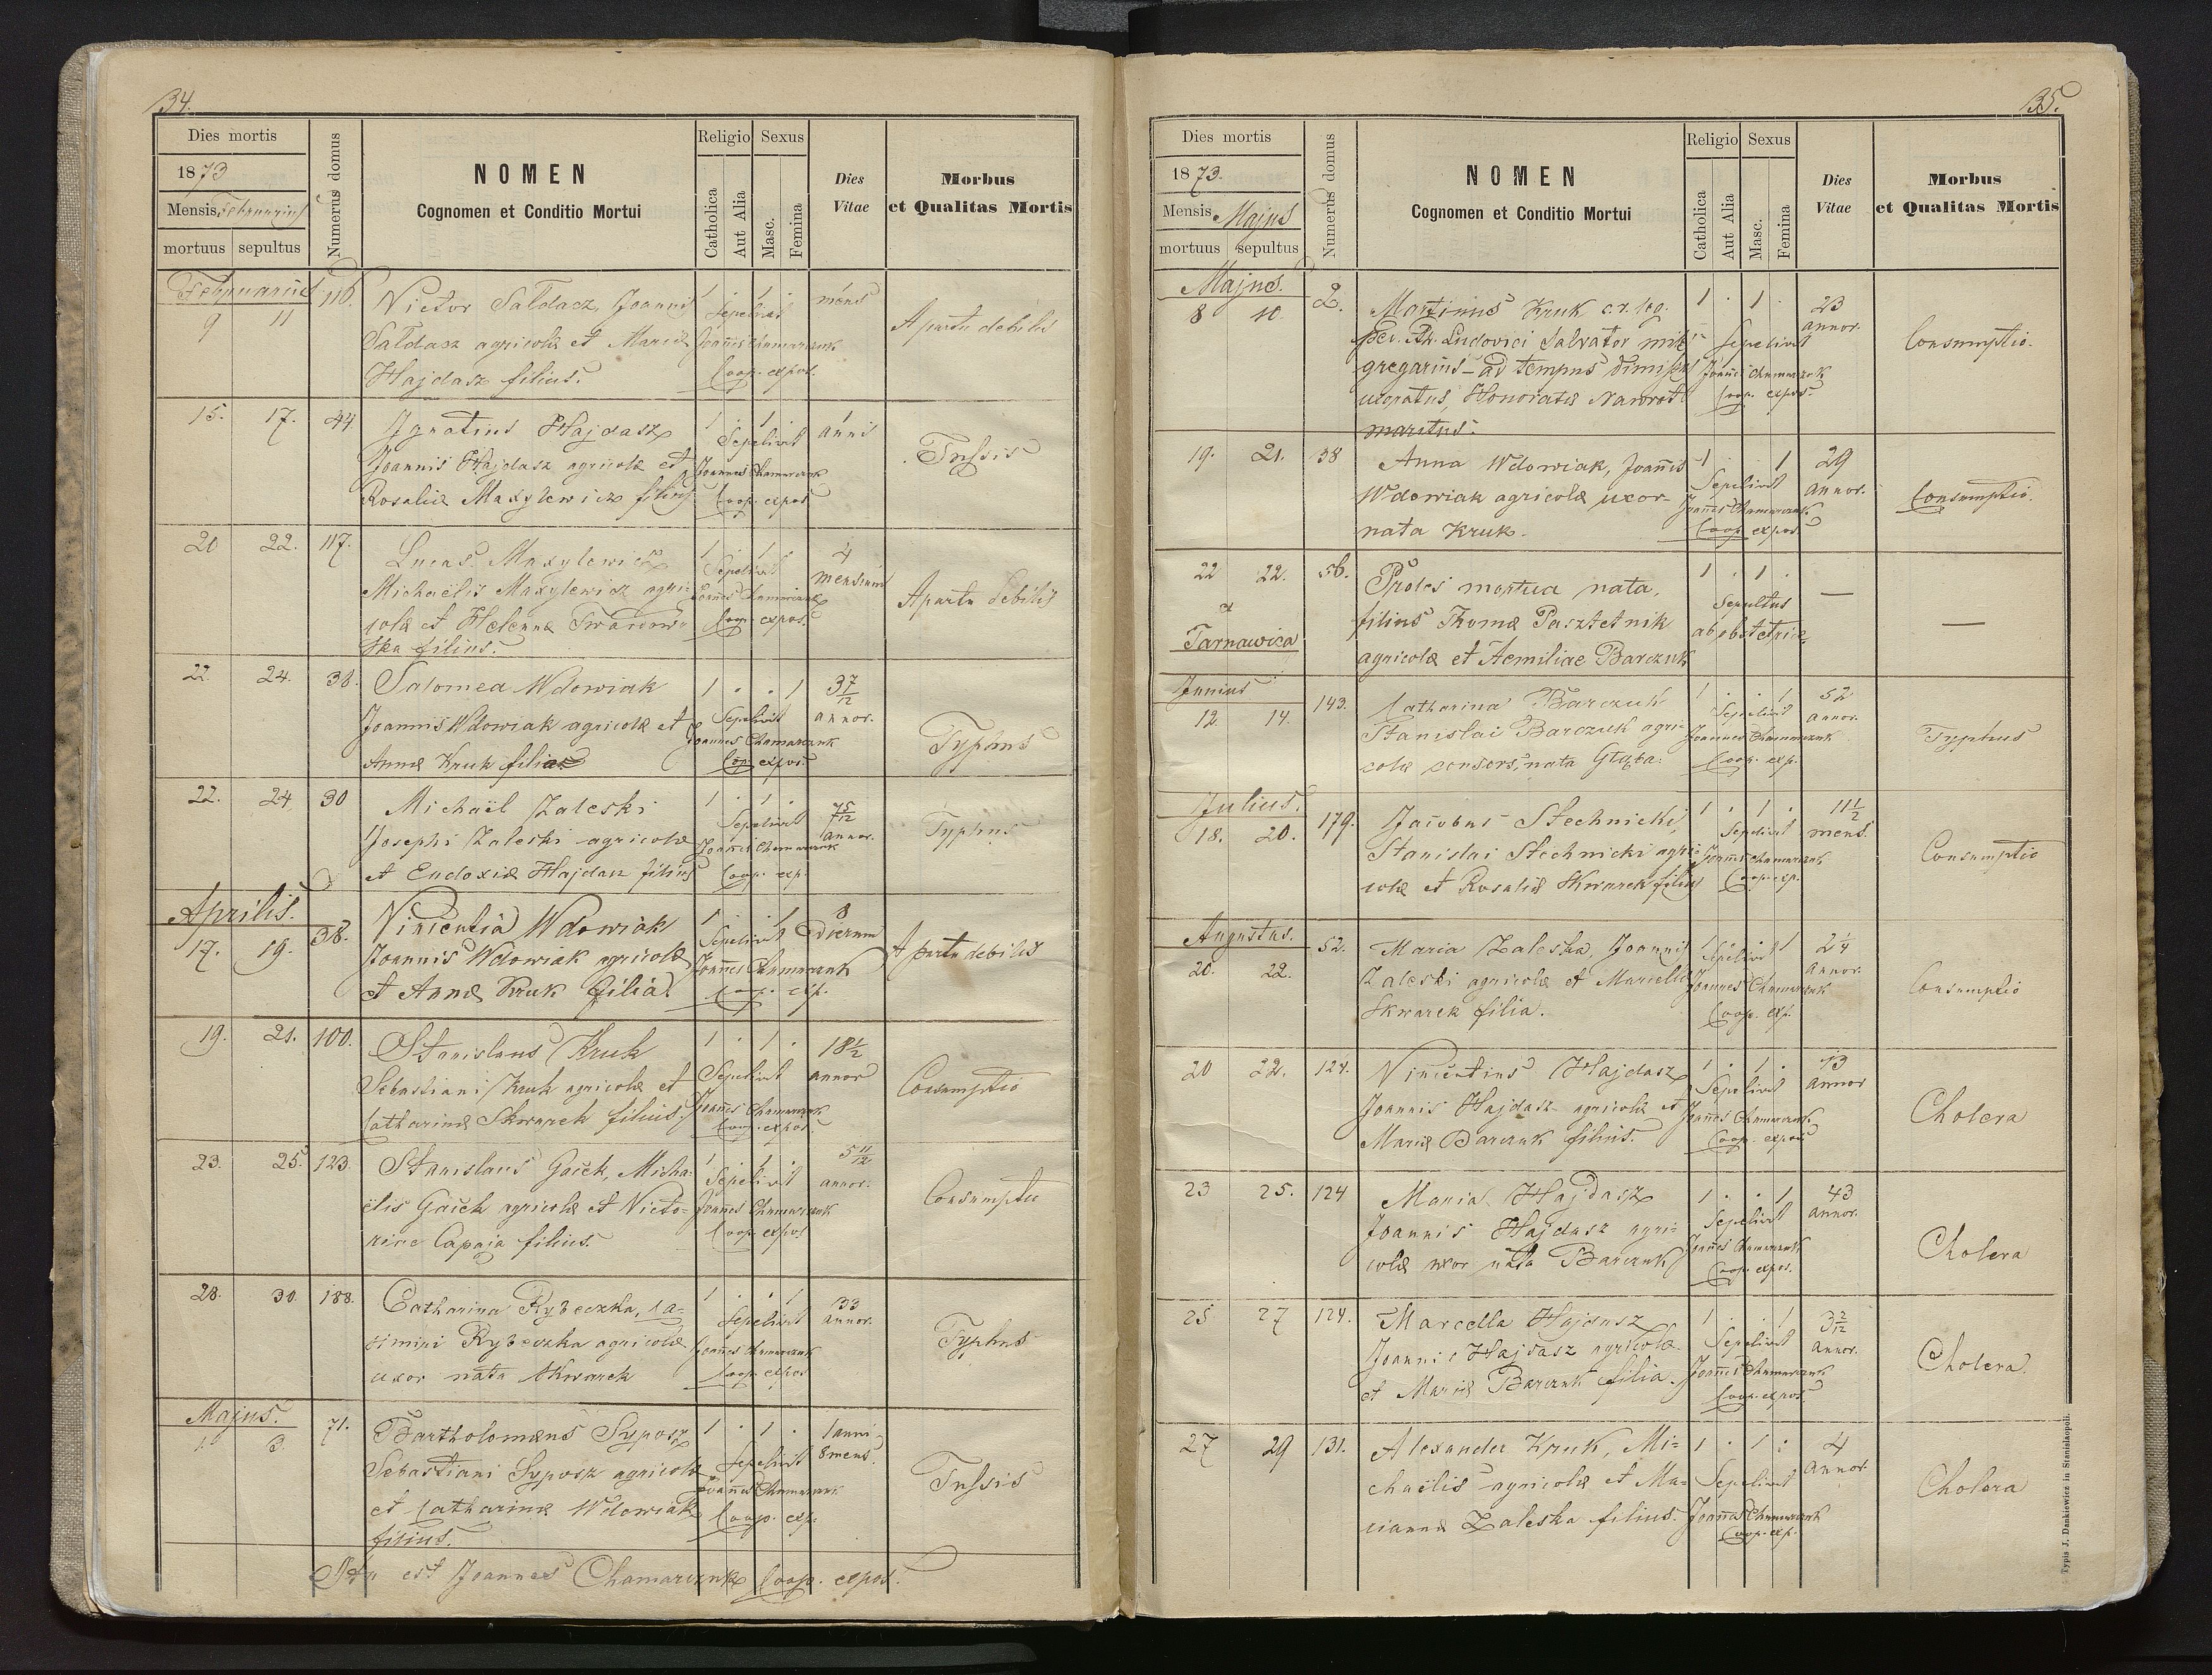 34.
Dies mortis
1873
Mensis Februarius
mortuus sepultus
Numerus domus
NOMEN
Cognomen et Conditio Mortui
Religio
Catholica
Aut Alia
Sexus
Masc.
Femina
Dies
Vitae
Morbus
et Qualitas Mortis
Februarius
9 11 116. Victor Sałdacz, Joannis 1 . 1 . mens
Sałdacz agricolæ et Mariæ Sepelivit
Hajdasz filius. Joannes Chamarczuk
Coop. expos.
A partu debilis
15. 17. 44 Ignatius Hajdasz 1 . 1 . anni
Joannis Hajdasz agricolæ et Sepelivit
Rosaliæ Maxylewicz filius. Joannes Chamarczuk
Coop. expos.
Tussis
20 22. 117. Lucas Maxylewicz 1 . 1 . 4
Michaëlis Maxylewicz agri- Sepelivit mensium
colæ et Helenæ Twardow- Joannes Chamarczuk
ska filius. Coop. expos.
A partu debilis
22 24. 38. Salomea Wdowiak 1 . . 1 3 7/12
Joannis Wdowiak agricolæ et Sepelivit annor.
Annæ Kruk filia Joannes Chamarczuk
Coop. expos.
Typhus
22. 24 30 Michaël Zaleski 1 . 1 . 7 5/12
Josephi Zaleski agricolæ Sepelivit annor.
et Eudoxiæ Hajdasz filius Joannes Chamarczuk
Coop. exp.
Typhus
Aprilis.
17. 19. 38. Vincentia Wdowiak 1 . . 1 8
Joannis Wdowiak agricolæ Sepelivit dierum
et Annæ Kruk filia. Joannes Chamarczuk
Coop. exp.
A partu debilis
19. 21. 100. Stanislaus Kruk 1 . 1 . 18 1/2
Sebastiani Kruk agricolæ et Sepelivit annor
Catharinæ Skwarek filius. Joannes Chamarczuk
Coop. expos.
Consumptio
23. 25. 123. Stanislaus Gącek, Micha- 1 . 1 . 5 11/12
ëlis Gącek agricolæ et Victo- Sepelivit annor.
riæ Capaja filius. Joannes Chamarczuk
Coop. expos
Consumptio
28. 30. 188. Catharina Rybeczka, Ca- 1 . . 1 33
simiri Rybeczka agricolæ Sepelivit annor.
uxor nata Skwarek Joannes Chamarczuk
Coop. expos
Typhus
Majus.
1 3. 71. Bartholomæus Syposz 1 . 1 . 1 anni
Sebastiani Syposz agricolæ Sepelivit 8 mens.
et Catharinæ Wdowiak Joannes Chamarczuk
filius. Coop. exp.
Tussis
est Joannes Chamarczuk Coop. expos.
35.
Dies mortis
1873.
Mensis Majus
mortuus sepultus
Numerus domus
NOMEN
Cognomen et Conditio Mortui
Religio
Catholica
Aut Alia
Sexus
Masc.
Femina
Dies
Vitae
Morbus
et Qualitas Mortis
Majus.
8 10. 2. Martinus Kruk c.r. leg. 1 . 1 . 23
Ludovici Salvator annor.
gregarius – ad tempus dimissus Sepelivit
uxoratus, Honoratæ Nawrot Joannes Chamarczuk
maritus. Coop. expos.
Consumptio.
19. 21. 38 Anna Wdowiak, Joannis 1 . . 1 29
Wdowiak agricolæ uxor Sepelivit annor.
nata Kruk. Joannes Chamarczuk
Coop. expos
Consumptio.
22 22. 56. Proles mortua nata, 1 . 1 . —
filius Thomæ Pasztetnik Sepultus
Tarnawica
agricolæ et Aemiliae Barczuk ab obstetrice
—
Junius
12 14. 143. Catharina Barczuk 1 . . 1 52
Stanislai Barczuk agri- Sepelivit annor.
colæ consors, nata Głąba. Joannes Chamarczuk
Coop. exp.
Typhus
Julius.
18. 20. 179. Jacobus Stechnicki, 1 . 1 . 11 1/2
Stanislai Stechnicki agri- Sepelivit mens.
colæ et Rosaliæ Skwarek filius Joannes Chamarczuk
Coop. exp.
Consumptio
Augustus.
20. 22. 52. Maria Zaleska, Joannis 1 . . 1 2 1/4
Zaleski agricolæ et Marcellæ Sepelivit annor.
Skwarek filia. Joannes Chamarczuk
Coop. exp.
Consumptio
20 22. 124. Vincentius Hajdasz 1 . 1 . 13
Joannis Hajdasz agricolæ et Sepelivit annor
Mariæ Barczuk filius. Joannes Chamarczuk
Coop. expos
Cholera
23 25. 124 Maria Hajdasz 1 . . 1 43
Joannis Hajdasz agri- Sepelivit annor.
colæ uxor nata Barczuk Joannes Chamarczuk
Coop. expos.
Cholera
25 27 124. Marcella Hajdasz 1 . . 1 3 2/12
Joannis Hajdasz agricolæ Sepelivit annor.
et Mariæ Barczuk filia. Joannes Chamarczuk
Coop. expos.
Cholera.
27 29 131. Alexander Kruk, Mi- 1 . 1 . 4
chaëlis agricolæ et Ma- Sepelivit annor
riannæ Zaleska filius. Joannes Chamarczuk
Coop. exp.
Cholera
Typis J. Dankiewicz in Stanislaopoli.